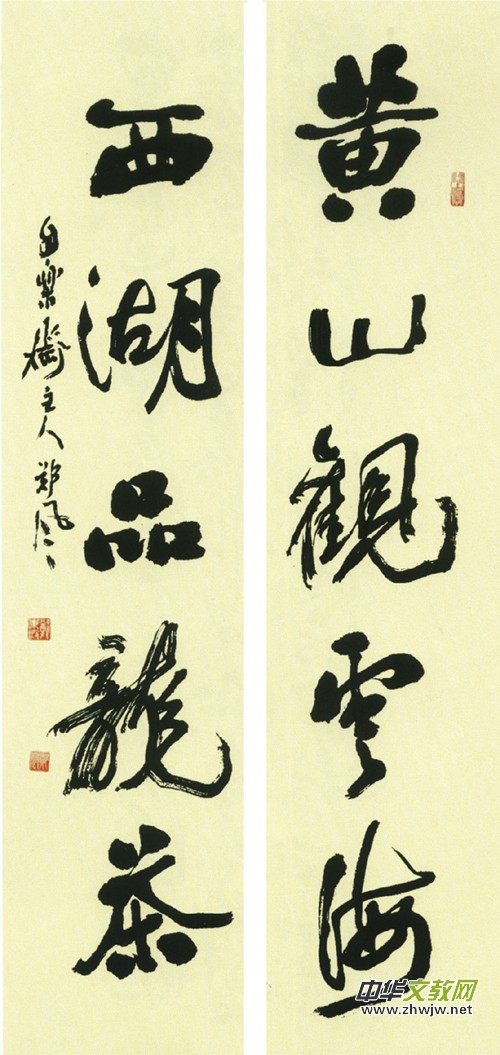 黄山觀雲海
西湖品龍茶
自樂齋主人 郑风
中华文教网
www.zhwjw.net